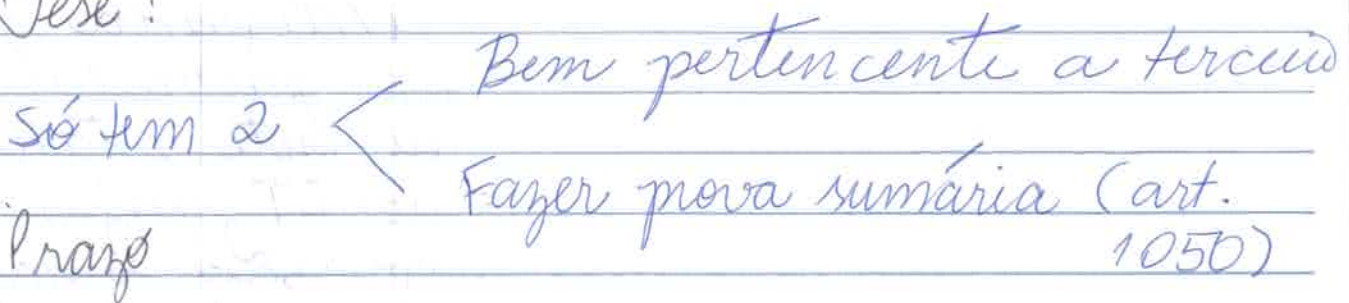 Tese:
Bem pertencente a terceiro
Só tem 2
Fazer prova sumária (art.
1050)
Prazo